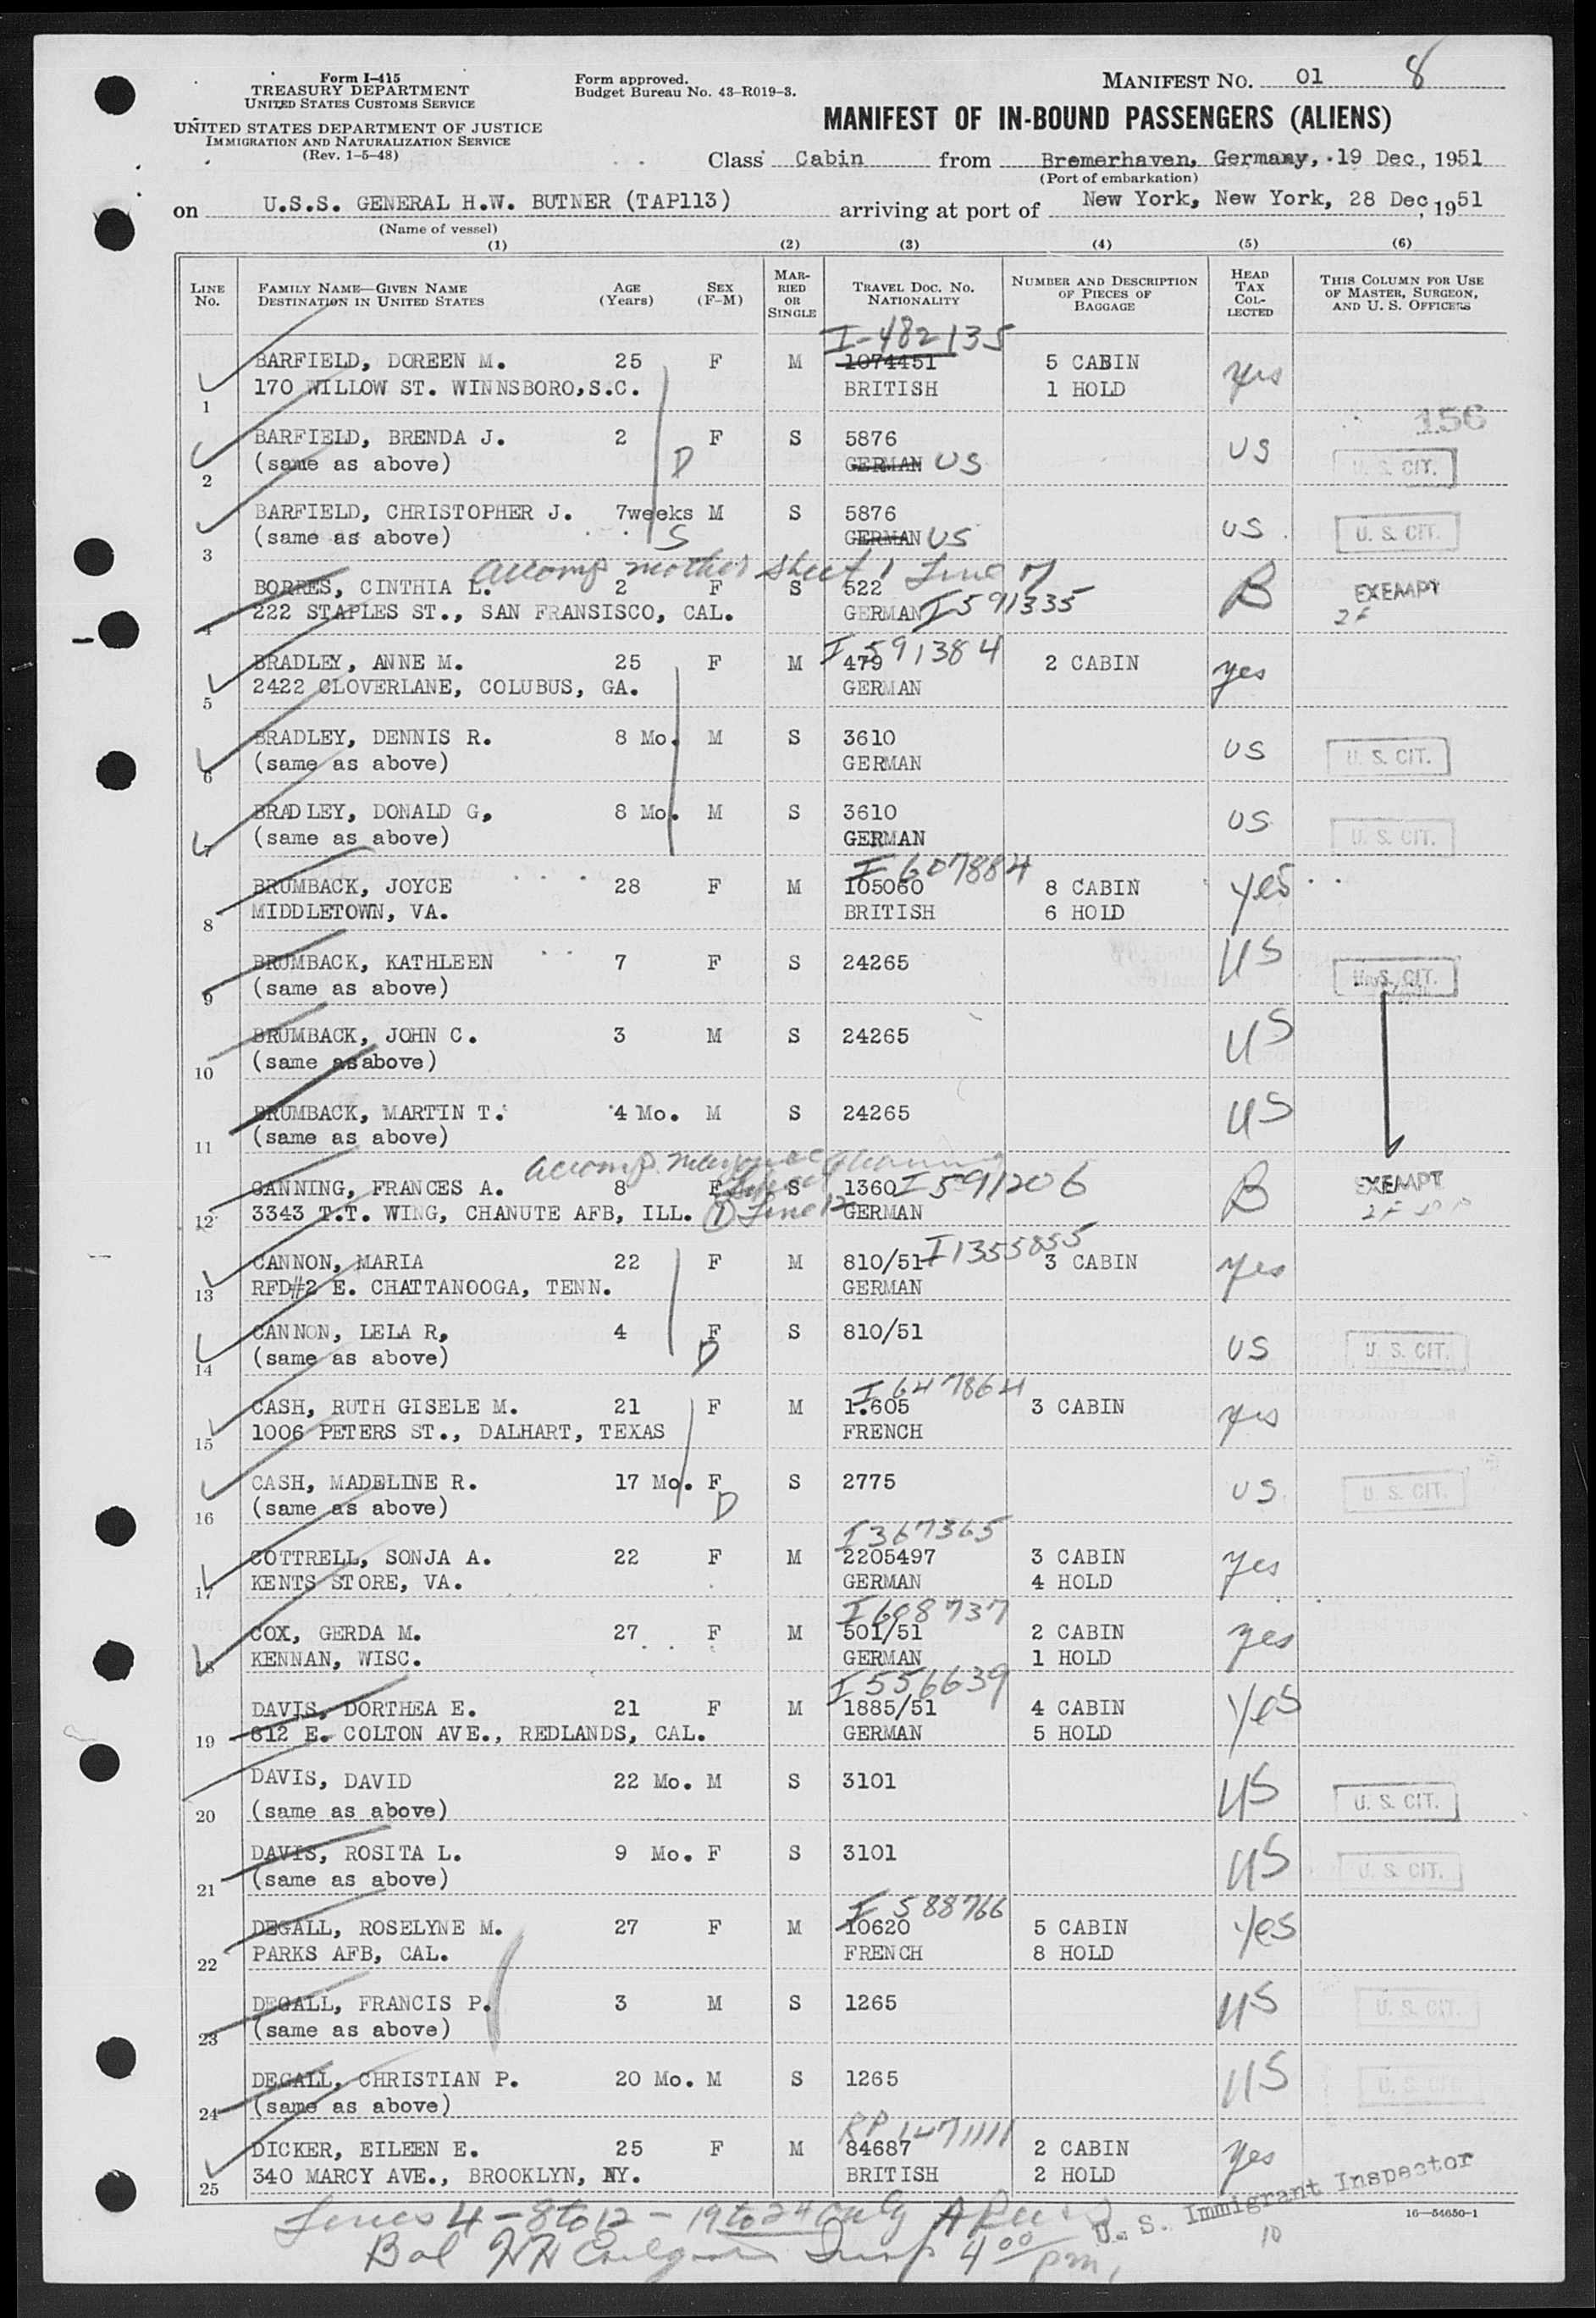 Form I-415
TREASURY DEPARTMENT
UNITED STATES CUSTOMS SERVICE
UNITED STATES DEPARTMENT OF JUSTICE
IMMIGRATION AND NATURALIZATION SERVICE
(Rev. 1-5-48)
Form approved.
Budget Bureau No. 43-R019-3.
MANIFEST NO. 01 8
MANIFEST OF IN-BOUND PASSENGERS (ALIENS)
Class Cabin from Bremerhaven, Germany, 19 Dec, 1951
(Port of embarkation)
on U.S.S. GENERAL H.W. BUTNER (TAP113) arriving at port of New York, New York, 28 Dec, 1951
(Name of vessel)
(1) (2) (3) (4) (5) (6)
LINE NO. FAMILY NAME—GIVEN NAME DESTINATION IN UNITED STATES AGE (Years) SEX (F-M) MARRIED OR SINGLE TRAVEL DOC. NO. NATIONALITY NUMBER AND DESCRIPTION OF PIECES OF BAGGAGE HEAD TAX COLLECTED THIS COLUMN FOR USE OF MASTER, SURGEON, AND U. S. OFFICERS
I-482135
BARFIELD, DOREEN M. 25 F M 1074451 5 CABIN yes
1 170 WILLOW ST. WINNSBORO,S.C. BRITISH 1 HOLD
156
BARFIELD, BRENDA J. 2 F S 5876 US
2 (same as above) D GERMAN US U. S. CIT.
BARFIELD, CHRISTOPHER J. 7weeks M S 5876 US
3 (same as above) S GERMAN US U. S. CIT.
accomp mother sheet 1 Line 7
BORRES, CINTHIA L. 2 F S 522 B EXEMPT
4 222 STAPLES ST., SAN FRANSISCO, CAL. GERMAN I591335 2F
I591384
BRADLEY, ANNE M. 25 F M 479 2 CABIN yes
5 2422 CLOVERLANE, COLUBUS, GA. GERMAN
BRADLEY, DENNIS R. 8 Mo. M S 3610 US
6 (same as above) GERMAN U. S. CIT.
BRADLEY, DONALD G. 8 Mo. M S 3610 US
7 (same as above) GERMAN U. S. CIT.
I607884
BRUMBACK, JOYCE 28 F M 105060 8 CABIN yes
8 MIDDLETOWN, VA. BRITISH 6 HOLD
BRUMBACK, KATHLEEN 7 F S 24265 US
9 (same as above) U. S. CIT.
BRUMBACK, JOHN C. 3 M S 24265 US
10 (same as above)
BRUMBACK, MARTIN T. 4 Mo. M S 24265 US
11 (same as above)
accomp
CANNING, FRANCES A. 8 F S 1360 I591206 B EXEMPT
12 3343 T.T. WING, CHANUTE AFB, ILL. 1 Line 12 GERMAN 2F
I1355855
CANNON, MARIA 22 F M 810/51 3 CABIN yes
13 RFD#2 E. CHATTANOOGA, TENN. GERMAN
CANNON, LELA R. 4 F S 810/51 US
14 (same as above) D U. S. CIT.
I647864
CASH, RUTH GISELE M. 21 F M 1.605 3 CABIN yes
15 1006 PETERS ST., DALHART, TEXAS FRENCH
CASH, MADELINE R. 17 Mo. F S 2775 US
16 (same as above) D U. S. CIT.
I367365
COTTRELL, SONJA A. 22 F M 2205497 3 CABIN yes
17 KENTS STORE, VA. GERMAN 4 HOLD
I608737
COX, GERDA M. 27 F M 501/51 2 CABIN yes
18 KENNAN, WISC. GERMAN 1 HOLD
I556639
DAVIS, DORTHEA E. 21 F M 1885/51 4 CABIN yes
19 812 E. COLTON AVE., REDLANDS, CAL. GERMAN 5 HOLD
DAVIS, DAVID 22 Mo. M S 3101 US
20 (same as above) U. S. CIT.
DAVIS, ROSITA L. 9 Mo. F S 3101 US
21 (same as above) U. S. CIT.
I588766
DEGALL, ROSELYNE M. 27 F M 10620 5 CABIN yes
22 PARKS AFB, CAL. FRENCH 8 HOLD
DEGALL, FRANCIS P. 3 M S 1265 US
23 (same as above) U. S. CIT.
DEGALL, CHRISTIAN P. 20 Mo. M S 1265 US
24 (same as above) U. S. CIT.
RP 1471111
DICKER, EILEEN E. 25 F M 84687 2 CABIN yes
25 340 MARCY AVE., BROOKLYN, NY. BRITISH 2 HOLD
Lines 4 - 8 to 12 - 19 to 24 only
U. S. Immigrant Inspector
10
16—54650-1
Bal Insp 4 00 pm